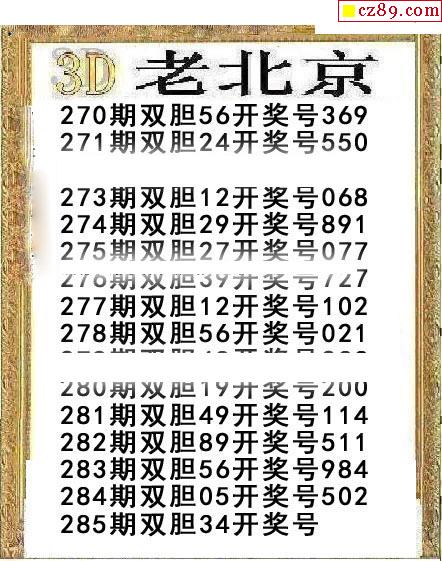 cz89.com
3D 老北京
270期双胆56开奖号369
271期双胆24开奖号550
273期双胆12开奖号068
274期双胆29开奖号891
275期双胆27开奖号077
276期双胆39开奖号727
277期双胆12开奖号102
278期双胆56开奖号021
280期双胆19开奖号200
281期双胆49开奖号114
282期双胆89开奖号511
283期双胆56开奖号984
284期双胆05开奖号502
285期双胆34开奖号